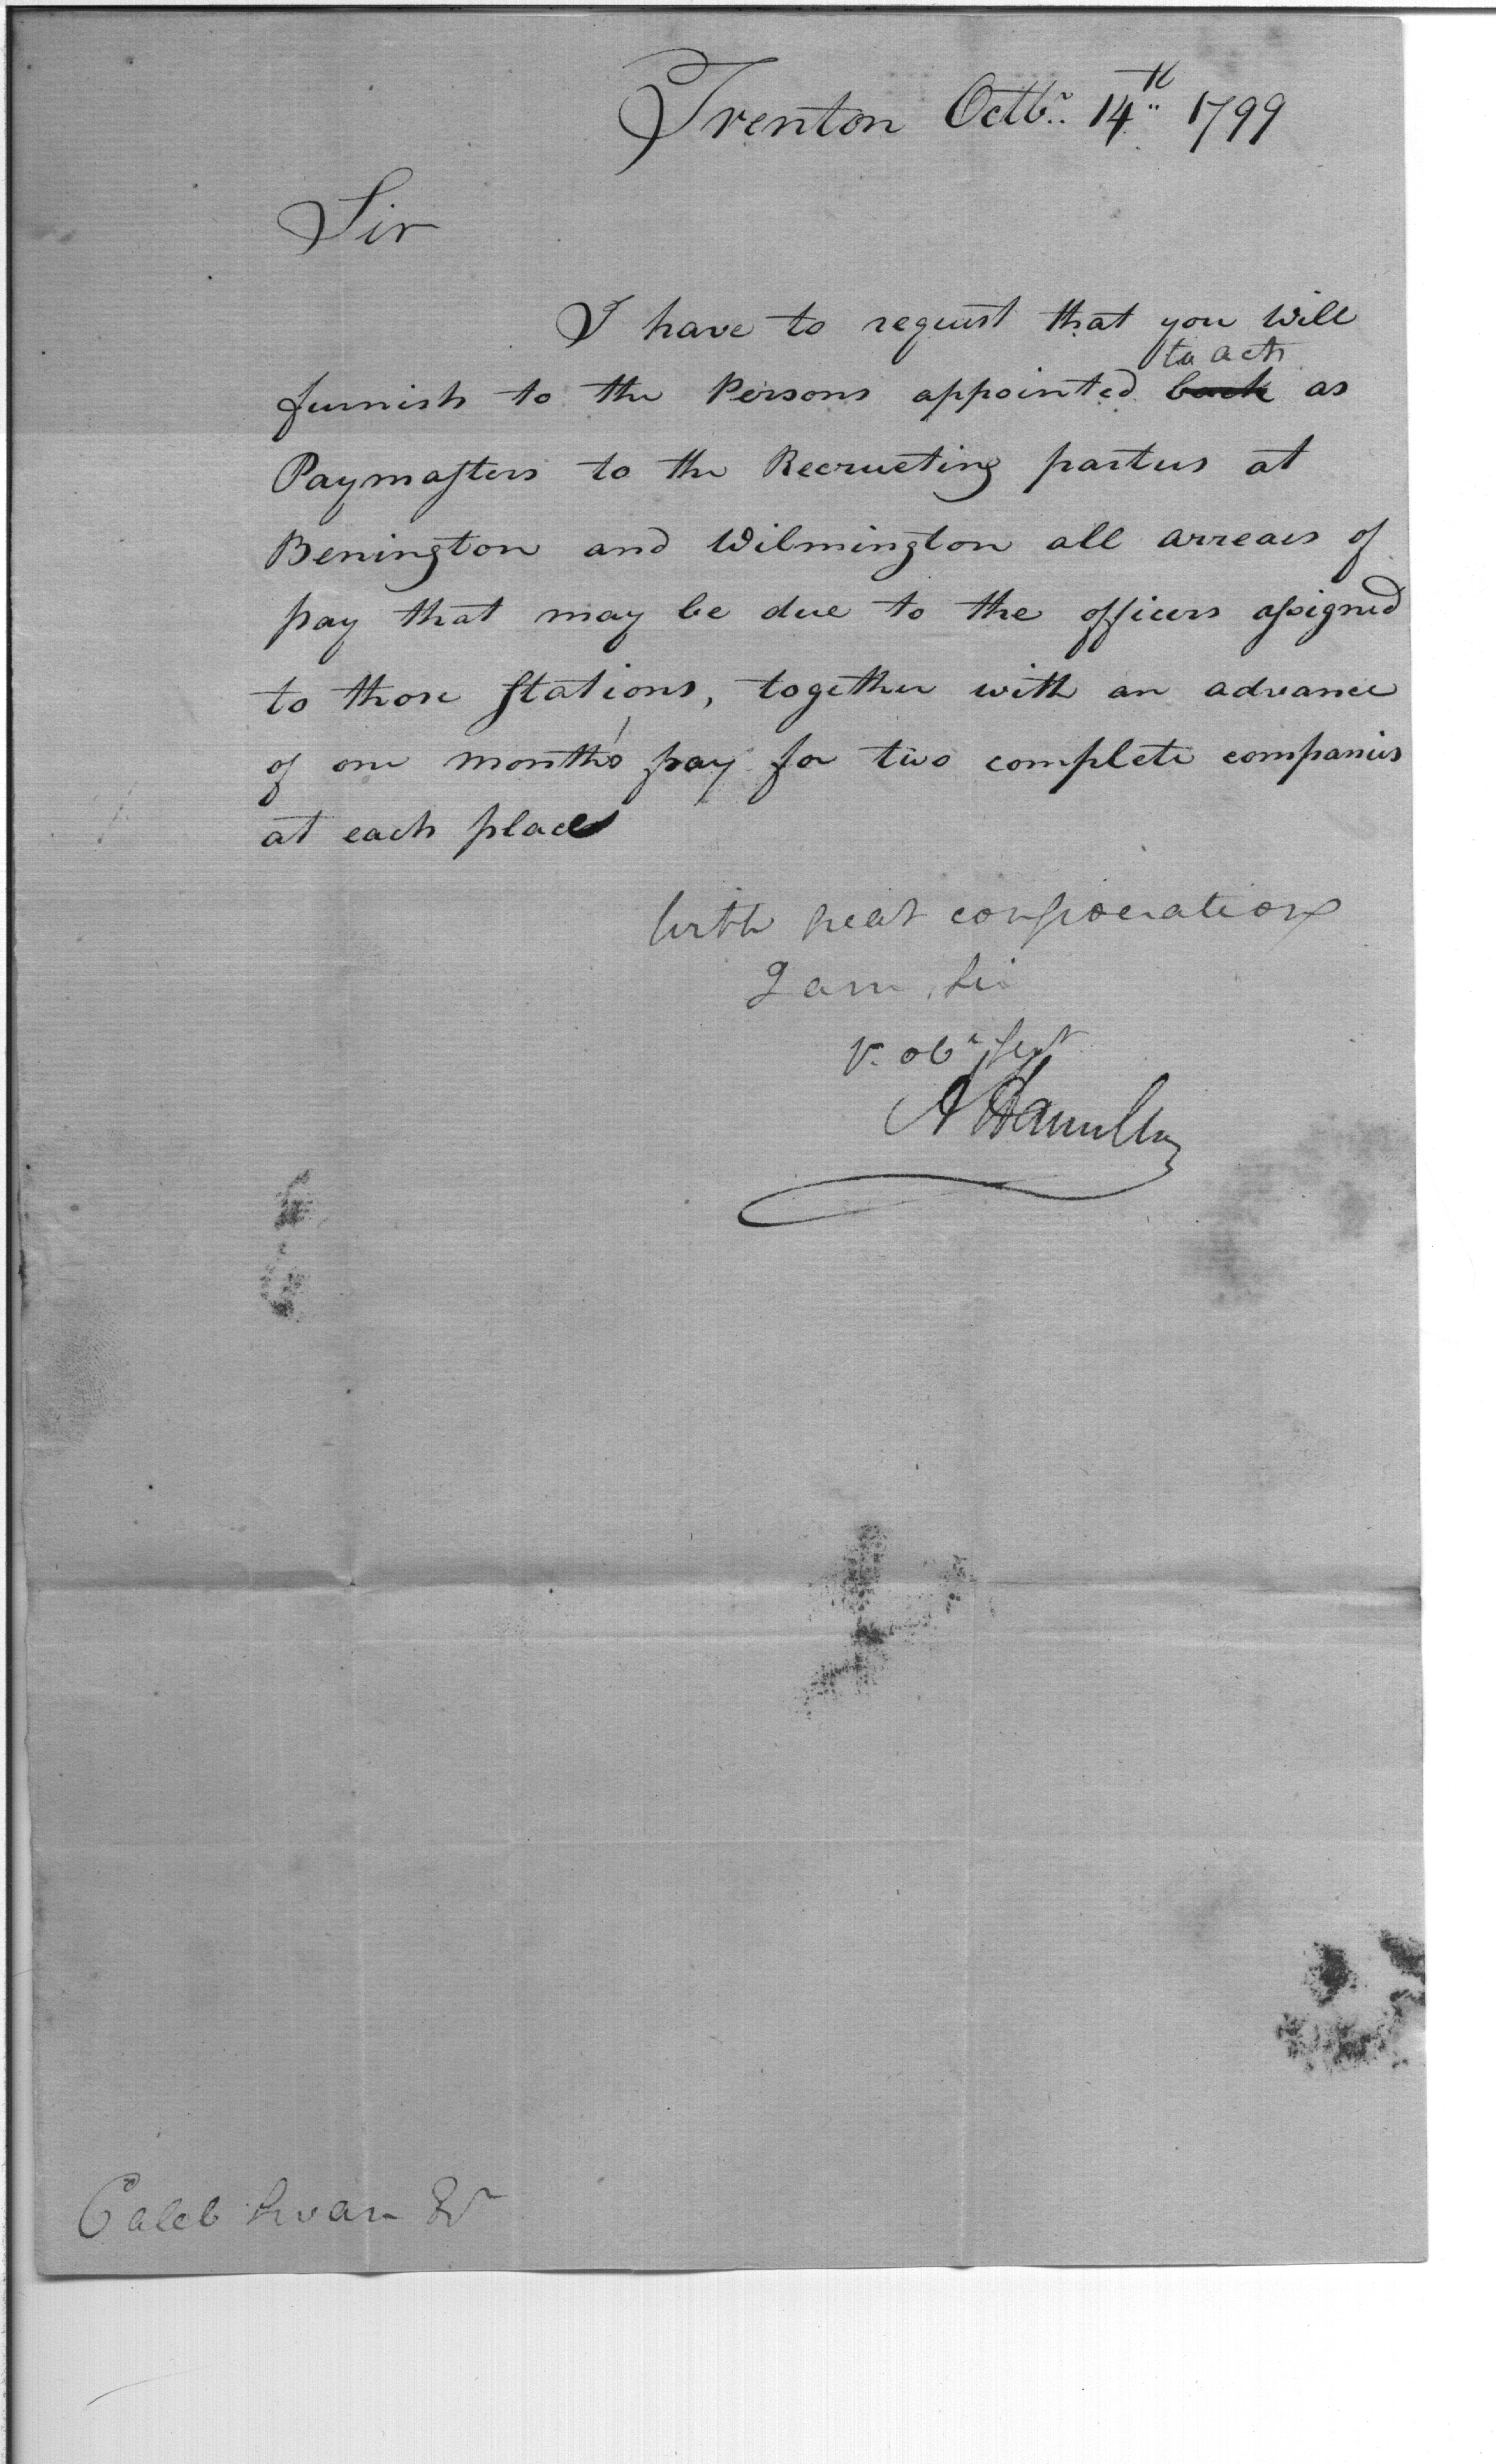 Trenton Octbr. 14th 1799
Sir
I have to request that you will
to act
furnish to the Persons appointed as
Paymasters to the Recrueting parties at
Benington and Wilmington all arrears of
pay that may be due to the officers assigned
to those Stations, together with an advance
of one month's pay for two complete companies
at each place
With great consideration
I am, Sir
Yr. obt Servt
A Hamilton
Caleb Swan Esr